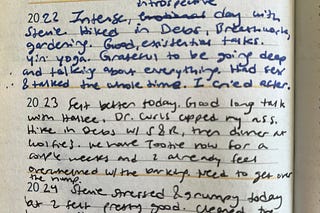 introspective
2022 Intense, emotional day with
Stevie. Hiked in Debs, Breathwork,
gardening. Good, existential talks.
Yin yoga. Grateful to be going deep
and talking about everything. Had sex
& talked the whole time. I cried after.
2023 Felt better today. Good long talk
with Hallee. Dr. Curls upped my
Hike in Debs w/ S&R, then dinner at
Wolfies. We have Tootie now for a
couple weeks and I already feel
overwhelmed w/ the barking. Need to get over
the hump.
2024 Stevie stressed & grumpy today
but I felt pretty good. Cleaned the